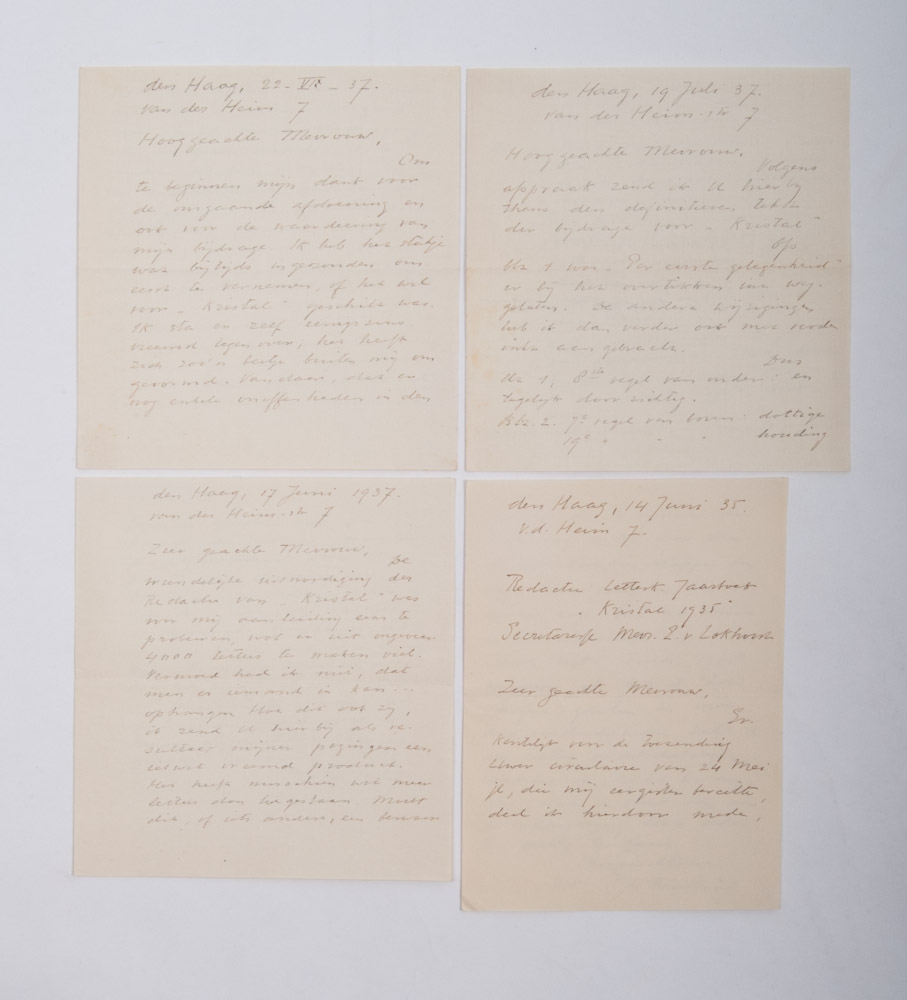 den Haag, 22-VI-37.
van der Heim 7
Hooggeachte Mevrouw,
Om
te beginnen mijn dank voor
de omgaande afdoening en
ook voor de waardeering van
mijn bijdrage. Ik heb het stukje
wat bijtijds ingezonden om
eerst te vernemen, of het wel
voor "Kristal" geschikt was.
Ik sta er zelf eenigszins
vreemd tegenover; het heeft
zich zoo'n beetje buiten mij om
gevormd. Vandaar, dat er
nog enkele oneffenheden in den
den Haag, 19 Juli 37.
van der Heim-str 7
Hooggeachte Mevrouw,
Volgens
afspraak zend ik U hierbij
thans den definitieven tekst
der bijdrage voor "Kristal"
Op
blz 1 was "Ter eerste gelegenheid"
er bij het overtikken uit weg-
gelaten. De andere wijzigingen
heb ik dan verder ook met rooden
inkt aangebracht.
Dus
blz 1, 8ste regel van onder: en
tegelijk doorzichtig.
Blz. 2. 7e regel van boven: dottige
19e " " " houding
den Haag, 17 Juni 1937.
van der Heim-str 7
Zeer geachte Mevrouw,
De
vriendelijke uitnoodiging der
Redactie van "Kristal" was
voor mij aanleiding eens te
probeeren, wat er uit ongeveer
4000 letters te maken viel.
Vermoed had ik niet, dat
men er iemand in kan...
ophangen. Hoe dit ook zij,
ik zend U hierbij als re-
sultaat mijner pogingen een
ietwat vreemd product.
Het heeft misschien wat meer
letters dan toegestaan. Mocht
dit, of iets anders, een bezwaar
den Haag, 14 Juni 35.
v.d. Heim 7.
Redactie Letterk. Jaarboek
"Kristal 1935"
Secretaresse Mevr. E v Lokhorst
Zeer geachte Mevrouw,
Er-
kentelijk voor de toezending
Uwer circulaire van 24 Mei
jl, die mij eergister bereikte,
deel ik hierdoor mede,